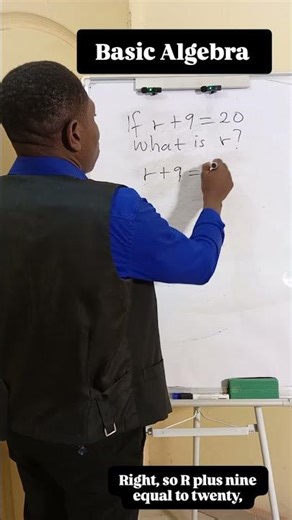 Basic Algebra
If r+9=20
what is r?
r+9=
Right, so R plus nine
equal to twenty,